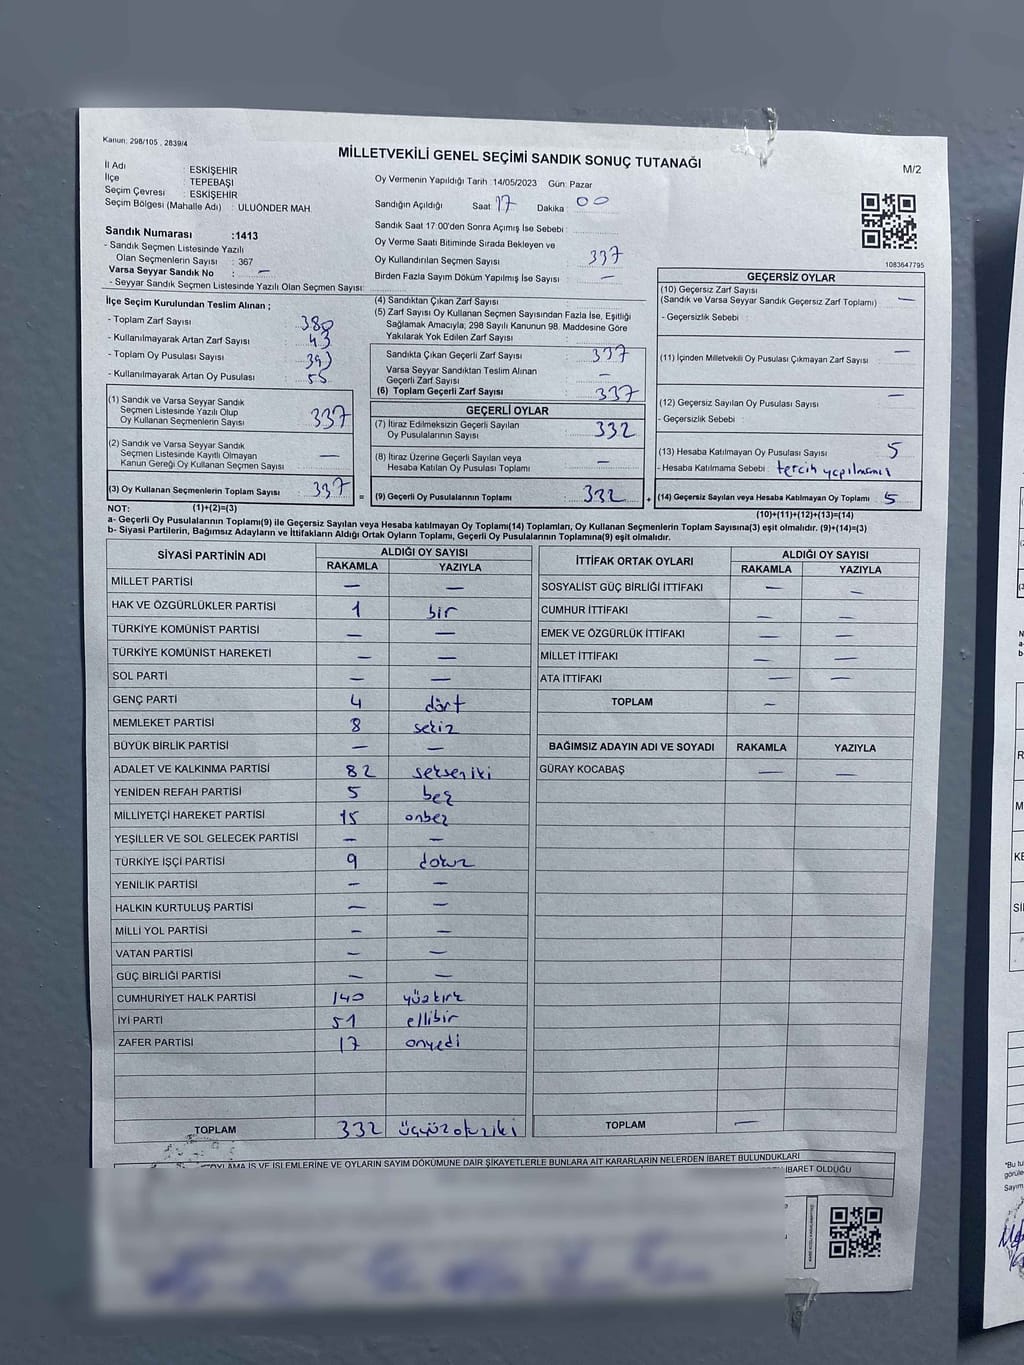 Kanun: 298/105 , 2839/4
MİLLETVEKİLİ GENEL SEÇİMİ SANDIK SONUÇ TUTANAĞI
M/2
İl Adı : ESKİŞEHİR
İlçe : TEPEBAŞI
Seçim Çevresi : ESKİŞEHİR
Seçim Bölgesi (Mahalle Adı) : ULUÖNDER MAH.
Oy Vermenin Yapıldığı Tarih :14/05/2023 Gün: Pazar
Sandığın Açıldığı Saat: 17 Dakika : 00
Sandık Saat 17:00'den Sonra Açımış İse Sebebi :
Sandık Numarası :1413
- Sandık Seçmen Listesinde Yazılı
Olan Seçmenlerin Sayısı : 367
Varsa Seyyar Sandık No : —
- Seyyar Sandık Seçmen Listesinde Yazılı Olan Seçmen Sayısı:
Oy Verme Saati Bitiminde Sırada Bekleyen ve
Oy Kullandırılan Seçmen Sayısı : 337
Birden Fazla Sayım Döküm Yapılmış İse Sayısı : —
1083647795
İlçe Seçim Kurulundan Teslim Alınan ;
- Toplam Zarf Sayısı : 380
- Kullanılmayarak Artan Zarf Sayısı : 43
- Toplam Oy Pusulası Sayısı
- Kullanılmayarak Artan Oy Pusulası : 55
(1) Sandık ve Varsa Seyyar Sandık
Seçmen Listesinde Yazılı Olup
Oy Kullanan Seçmenlerin Sayısı 337
(2) Sandık ve Varsa Seyyar Sandık
Seçmen Listesinde Kayıtlı Olmayan
Kanun Gereği Oy Kullanan Seçmen Sayısı —
(3) Oy Kullanan Seçmenlerin Toplam Sayısı 337
(1)+(2)=(3)
(4) Sandıktan Çıkan Zarf Sayısı :
(5) Zarf Sayısı Oy Kullanan Seçmen Sayısından Fazla İse, Eşitliği
Sağlamak Amacıyla; 298 Sayılı Kanunun 98. Maddesine Göre
Yakılarak Yok Edilen Zarf Sayısı :
Sandıkta Çıkan Geçerli Zarf Sayısı : 337
Varsa Seyyar Sandıktan Teslim Alınan
Geçerli Zarf Sayısı : —
(6) Toplam Geçerli Zarf Sayısı : 337
GEÇERLİ OYLAR
(7) İtiraz Edilmeksizin Geçerli Sayılan
Oy Pusulalarının Sayısı : 332
(8) İtiraz Üzerine Geçerli Sayılan veya
Hesaba Katılan Oy Pusulası Toplamı : —
= (9) Geçerli Oy Pusulalarının Toplamı : 332
GEÇERSİZ OYLAR
(10) Geçersiz Zarf Sayısı
(Sandık ve Varsa Seyyar Sandık Geçersiz Zarf Toplamı) : —
- Geçersizlik Sebebi :
(11) İçinden Milletvekili Oy Pusulası Çıkmayan Zarf Sayısı : —
(12) Geçersiz Sayılan Oy Pusulası Sayısı : —
- Geçersizlik Sebebi :
(13) Hesaba Katılmayan Oy Pusulası Sayısı : 5
- Hesaba Katılmama Sebebi : tercih yapılmamış
+ (14) Geçersiz Sayılan veya Hesaba Katılmayan Oy Toplamı : 5
(10)+(11)+(12)+(13)=(14)
NOT:
a- Geçerli Oy Pusulalarının Toplamı(9) ile Geçersiz Sayılan veya Hesaba katılmayan Oy Toplamı(14) Toplamları, Oy Kullanan Seçmenlerin Toplam Sayısına(3) eşit olmalıdır. (9)+(14)=(3)
b- Siyasi Partilerin, Bağımsız Adayların ve İttifakların Aldığı Ortak Oyların Toplamı, Geçerli Oy Pusulalarının Toplamına(9) eşit olmalıdır.
SİYASİ PARTİNİN ADI ALDIĞI OY SAYISI
RAKAMLA YAZIYLA
MİLLET PARTİSİ — —
HAK VE ÖZGÜRLÜKLER PARTİSİ 1 bir
TÜRKİYE KOMÜNİST PARTİSİ — —
TÜRKİYE KOMÜNİST HAREKETİ — —
SOL PARTİ — —
GENÇ PARTİ 4 dört
MEMLEKET PARTİSİ 8 sekiz
BÜYÜK BİRLİK PARTİSİ — —
ADALET VE KALKINMA PARTİSİ 82 sekseniki
YENİDEN REFAH PARTİSİ 5 beş
MİLLİYETÇİ HAREKET PARTİSİ 15 onbeş
YEŞİLLER VE SOL GELECEK PARTİSİ — —
TÜRKİYE İŞÇİ PARTİSİ 9 dokuz
YENİLİK PARTİSİ — —
HALKIN KURTULUŞ PARTİSİ — —
MİLLİ YOL PARTİSİ — —
VATAN PARTİSİ — —
GÜÇ BİRLİĞİ PARTİSİ — —
CUMHURİYET HALK PARTİSİ 140 yüzkırk
İYİ PARTİ 51 ellibir
ZAFER PARTİSİ 17 onyedi
TOPLAM 332 üçyüzotuziki
İTTİFAK ORTAK OYLARI ALDIĞI OY SAYISI
RAKAMLA YAZIYLA
SOSYALİST GÜÇ BİRLİĞİ İTTİFAKI — —
CUMHUR İTTİFAKI — —
EMEK VE ÖZGÜRLÜK İTTİFAKI — —
MİLLET İTTİFAKI — —
ATA İTTİFAKI — —
TOPLAM —
BAĞIMSIZ ADAYIN ADI VE SOYADI RAKAMLA YAZIYLA
GÜRAY KOCABAŞ — —
TOPLAM —
OYLAMA İŞ VE İŞLEMLERİNE VE OYLARIN SAYIM DÖKÜMÜNE DAİR ŞİKAYETLERLE BUNLARA AİT KARARLARIN NELERDEN İBARET BULUNDUKLARI
İBARET OLDUĞU